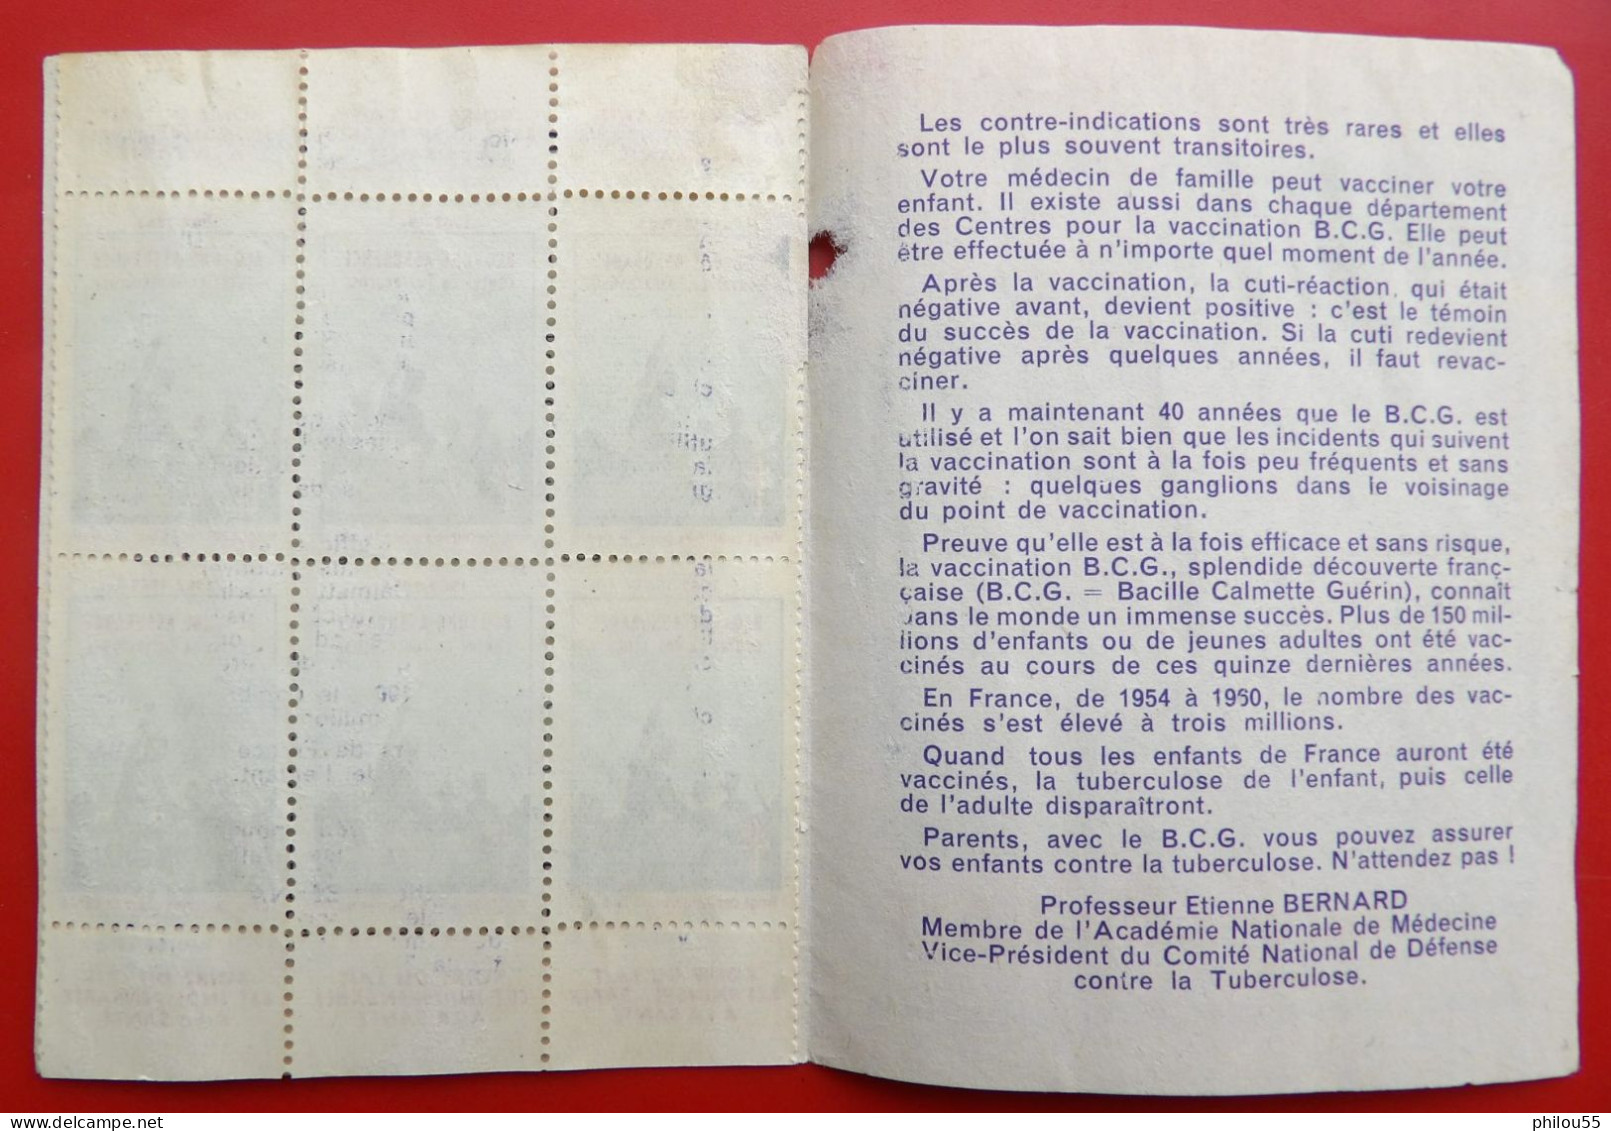 Les contre-indications sont très rares et elles
sont le plus souvent transitoires.
Votre médecin de famille peut vacciner votre
enfant. Il existe aussi dans chaque département
des Centres pour la vaccination B.C.G. Elle peut
être effectuée à n'importe quel moment de l'année.
Après la vaccination, la cuti-réaction, qui était
négative avant, devient positive : c'est le témoin
du succès de la vaccination. Si la cuti redevient
négative après quelques années, il faut revac-
ciner.
Il y a maintenant 40 années que le B.C.G. est
utilisé et l'on sait bien que les incidents qui suivent
la vaccination sont à la fois peu fréquents et sans
gravité : quelques ganglions dans le voisinage
du point de vaccination.
Preuve qu'elle est à la fois efficace et sans risque,
la vaccination B.C.G., splendide découverte franç-
çaise (B.C.G. = Bacille Calmette Guérin), connaît
dans le monde un immense succès. Plus de 150 mil-
lions d'enfants ou de jeunes adultes ont été vac-
cinés au cours de ces quinze dernières années.
En France, de 1954 à 1960, le nombre des vac-
cinés s'est élevé à trois millions.
Quand tous les enfants de France auront été
vaccinés, la tuberculose de l'enfant, puis celle
de l'adulte disparaîtront.
Parents, avec le B.C.G. vous pouvez assurer
vos enfants contre la tuberculose. N'attendez pas !
Professeur Etienne BERNARD
Membre de l'Académie Nationale de Médecine
Vice-Président du Comité National de Défense
contre la Tuberculose.
philou55